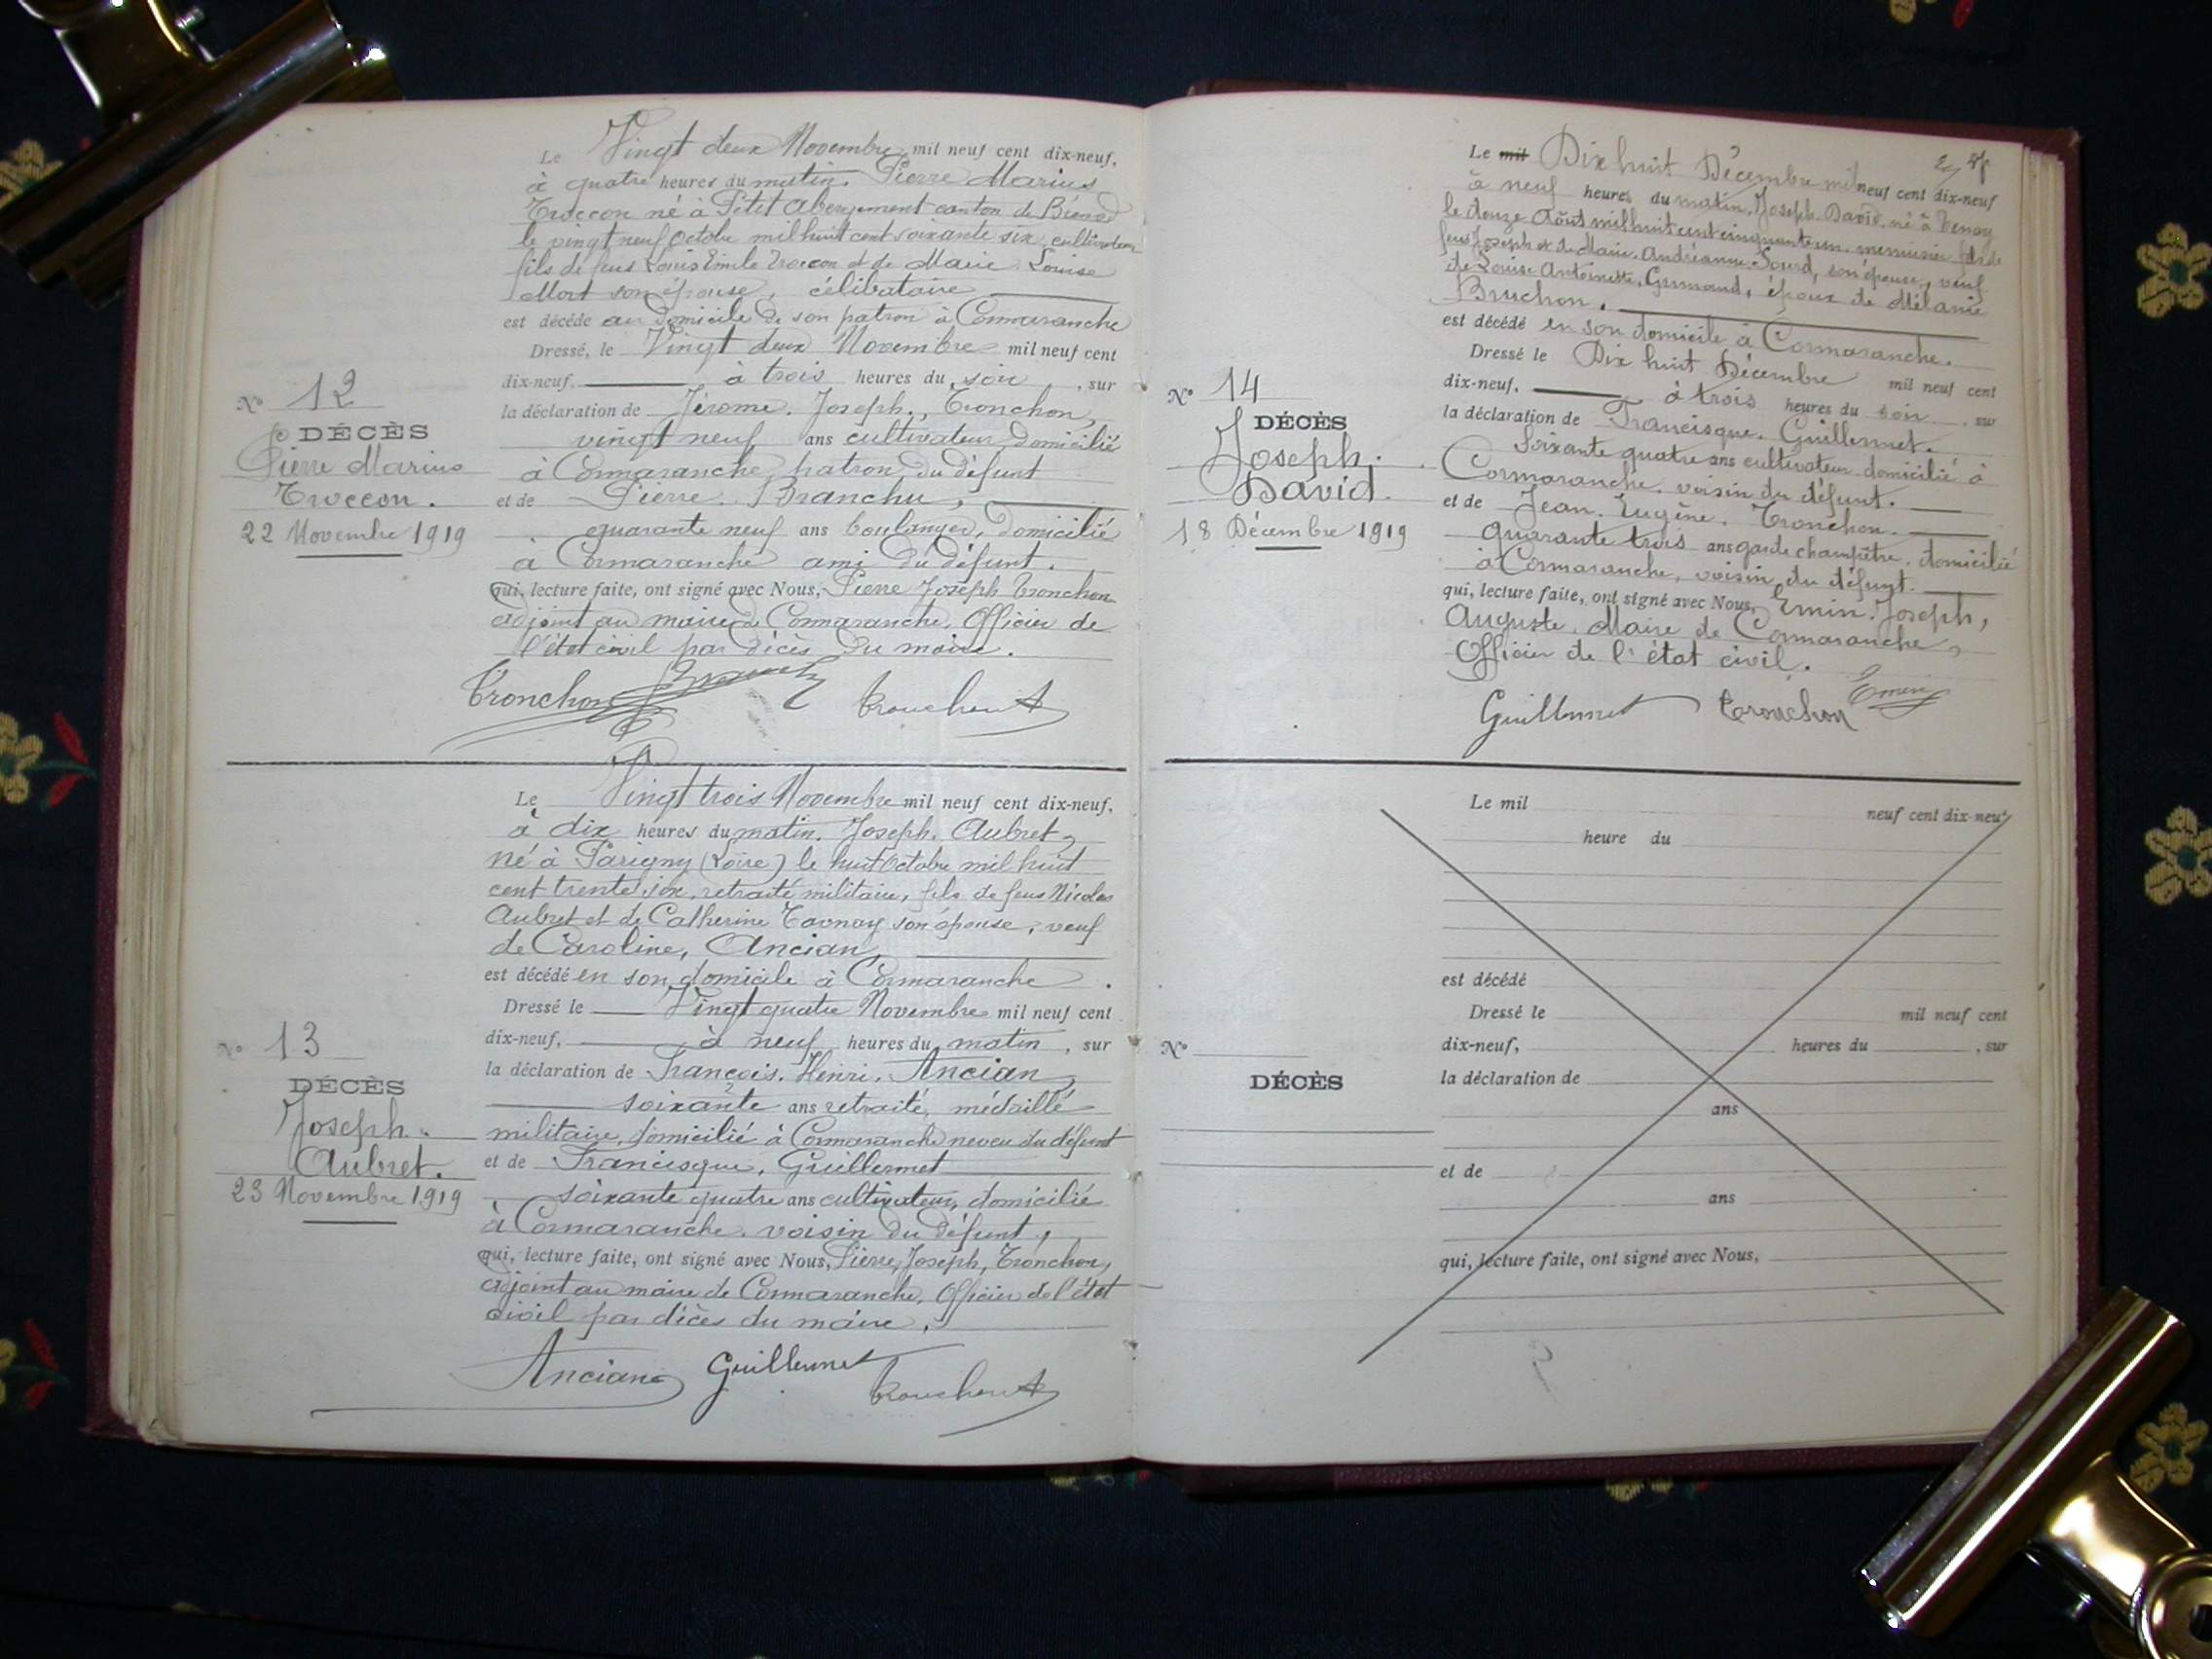 Le Vingt deux Novembre mil neuf cent dix-neuf,
à quatre heures du matin. Pierre Marius
Troccon né à Petit Abergement canton de
le vingt neuf Octobre mil huit cent soixante six cultivateur
fils de feus Louis Emile Troccon et de Marie Louise
Mort son épouse, célibataire
est décédé au domicile de son patron à Cormaranche
Dressé, le Vingt deux Novembre mil neuf cent
dix-neuf. à trois heures du soir, sur
la déclaration de Jérome. Joseph., Tronchon,
vingt neuf ans cultivateur domicilié
à Cormaranche, patron du défunt
et de Pierre. Branchu,
quarante neuf ans boulanger, domicilié
à Cormaranche ami du défunt.
qui, lecture faite, ont signé avec Nous, Pierre Joseph Tronchon
adjoint au maire de Cormaranche, Officier de
l'état civil par décès du maire.
Tronchon
Nº 12
DÉCÈS
Pierre Marius
Troccon.
22 Novembre 1919
Le Vingt trois Novembre mil neuf cent dix-neuf,
à dix heures du matin. Joseph. Aubret,
né à Parigny (Loire) le huit Octobre mil huit
cent trente six, retraité militaire, fils de feus Nicolas
Aubret et de Catherine son épouse, veuf
de Caroline, Ancian,
est décédé en son domicile à Cormaranche.
Dressé le Vingt quatre Novembre mil neuf cent
dix-neuf, à neuf heures du matin, sur
la déclaration de François. Henri. Ancian,
soixante ans retraité, médaillé
militaire, domicilié à Cormaranche neveu du défunt
et de Francisque, Guillermet
soixante quatre ans cultivateur, domicilié
à Cormaranche. voisin du défunt,
qui, lecture faite, ont signé avec Nous, Pierre, Joseph, Tronchon,
adjoint au maire de Cormaranche, Officier de l'état
civil par décès du maire.
Ancian Guillermet
Nº 13
DÉCÈS
Joseph.
Aubret.
23 Novembre 1919
Le mil Dix huit Décembre mil neuf cent dix-neuf
à neuf heures du matin. Joseph. David. né à Tenay
le douze Août mil huit cent cinquante un. menuisier fils de
feus Joseph et de Marie. Andréanne. Sourd, son épouse, veuf
de Louise Antoinette, Grumand, époux de Mélanie
Bruchon.
est décédé en son domicile à Cormaranche.
Dressé le Dix huit Décembre mil neuf cent
dix-neuf, à trois heures du soir, sur
la déclaration de Francisque. Guillermet.
Soixante quatre ans cultivateur domicilié à
Cormaranche. voisin du défunt.
et de Jean. Eugène. Tronchon.
Quarante trois ans garde champêtre, domicilié
à Cormaranche, voisin du défunt.
qui, lecture faite, ont signé avec Nous, Emin. Joseph,
Auguste. Maire de Cormaranche,
Officier de l'état civil.
Guillermet Tronchon Emin
Nº 14
DÉCÈS
Joseph.
David.
18 Décembre 1919
Le mil neuf cent dix-neuf
heure du
est décédé
Dressé le mil neuf cent
dix-neuf, heures du , sur
la déclaration de
ans
et de
ans
qui, lecture faite, ont signé avec Nous,
Nº
DÉCÈS